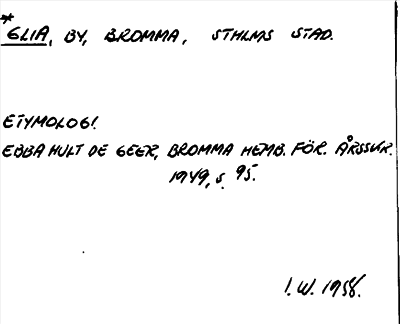 *GLIA, BY, BROMMA, STHLMS STAD.
ETYMOLOGI
EBBA HULT DE GEER, BROMMA HEMB. FÖR. ÅRSSKR.
1949, S. 95.
I. W. 1958.